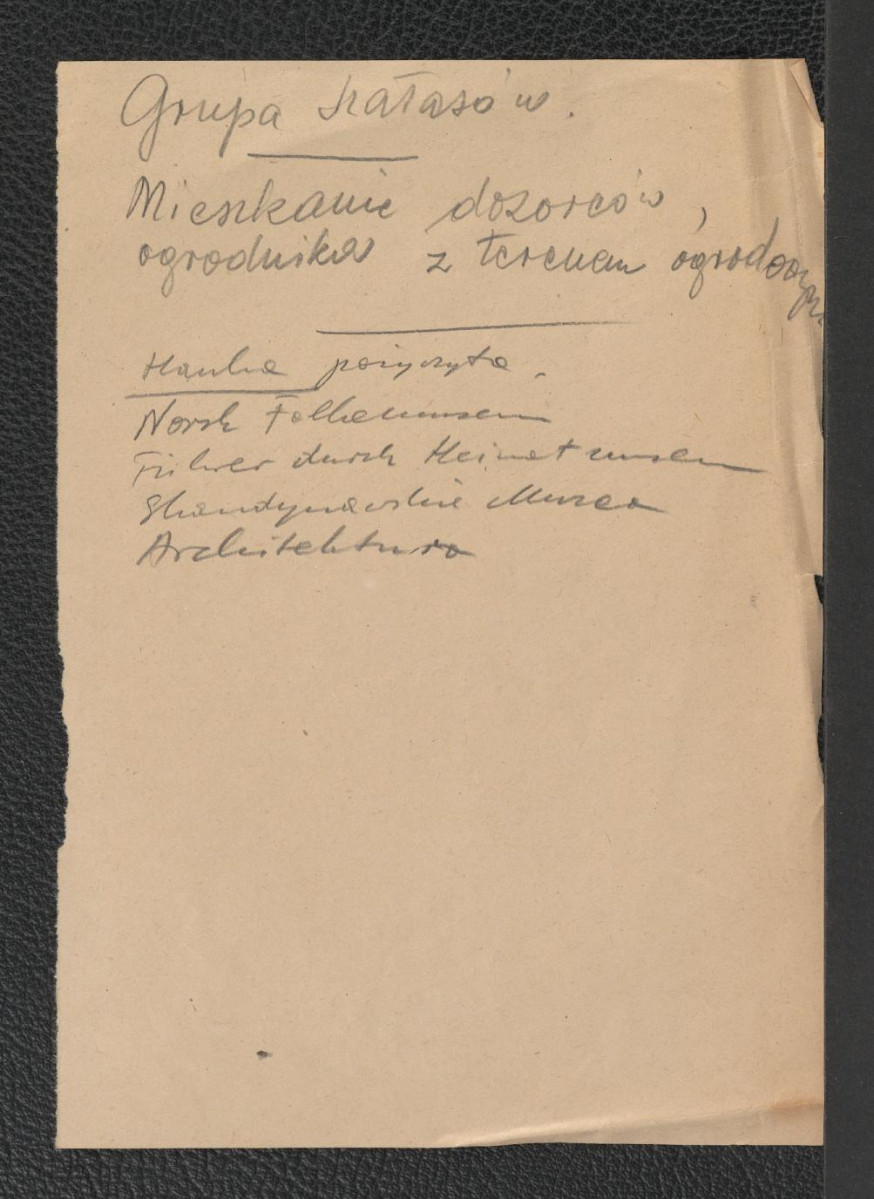 Grupa szałasów.
Mieszkanie dozorców,
ogrodników z terenem ogrodowym
Hanka pożyczyła.
Norsk Folkemuseum
Führer durch Heimatmuseum
Skandynawskie Muzea
Architektura